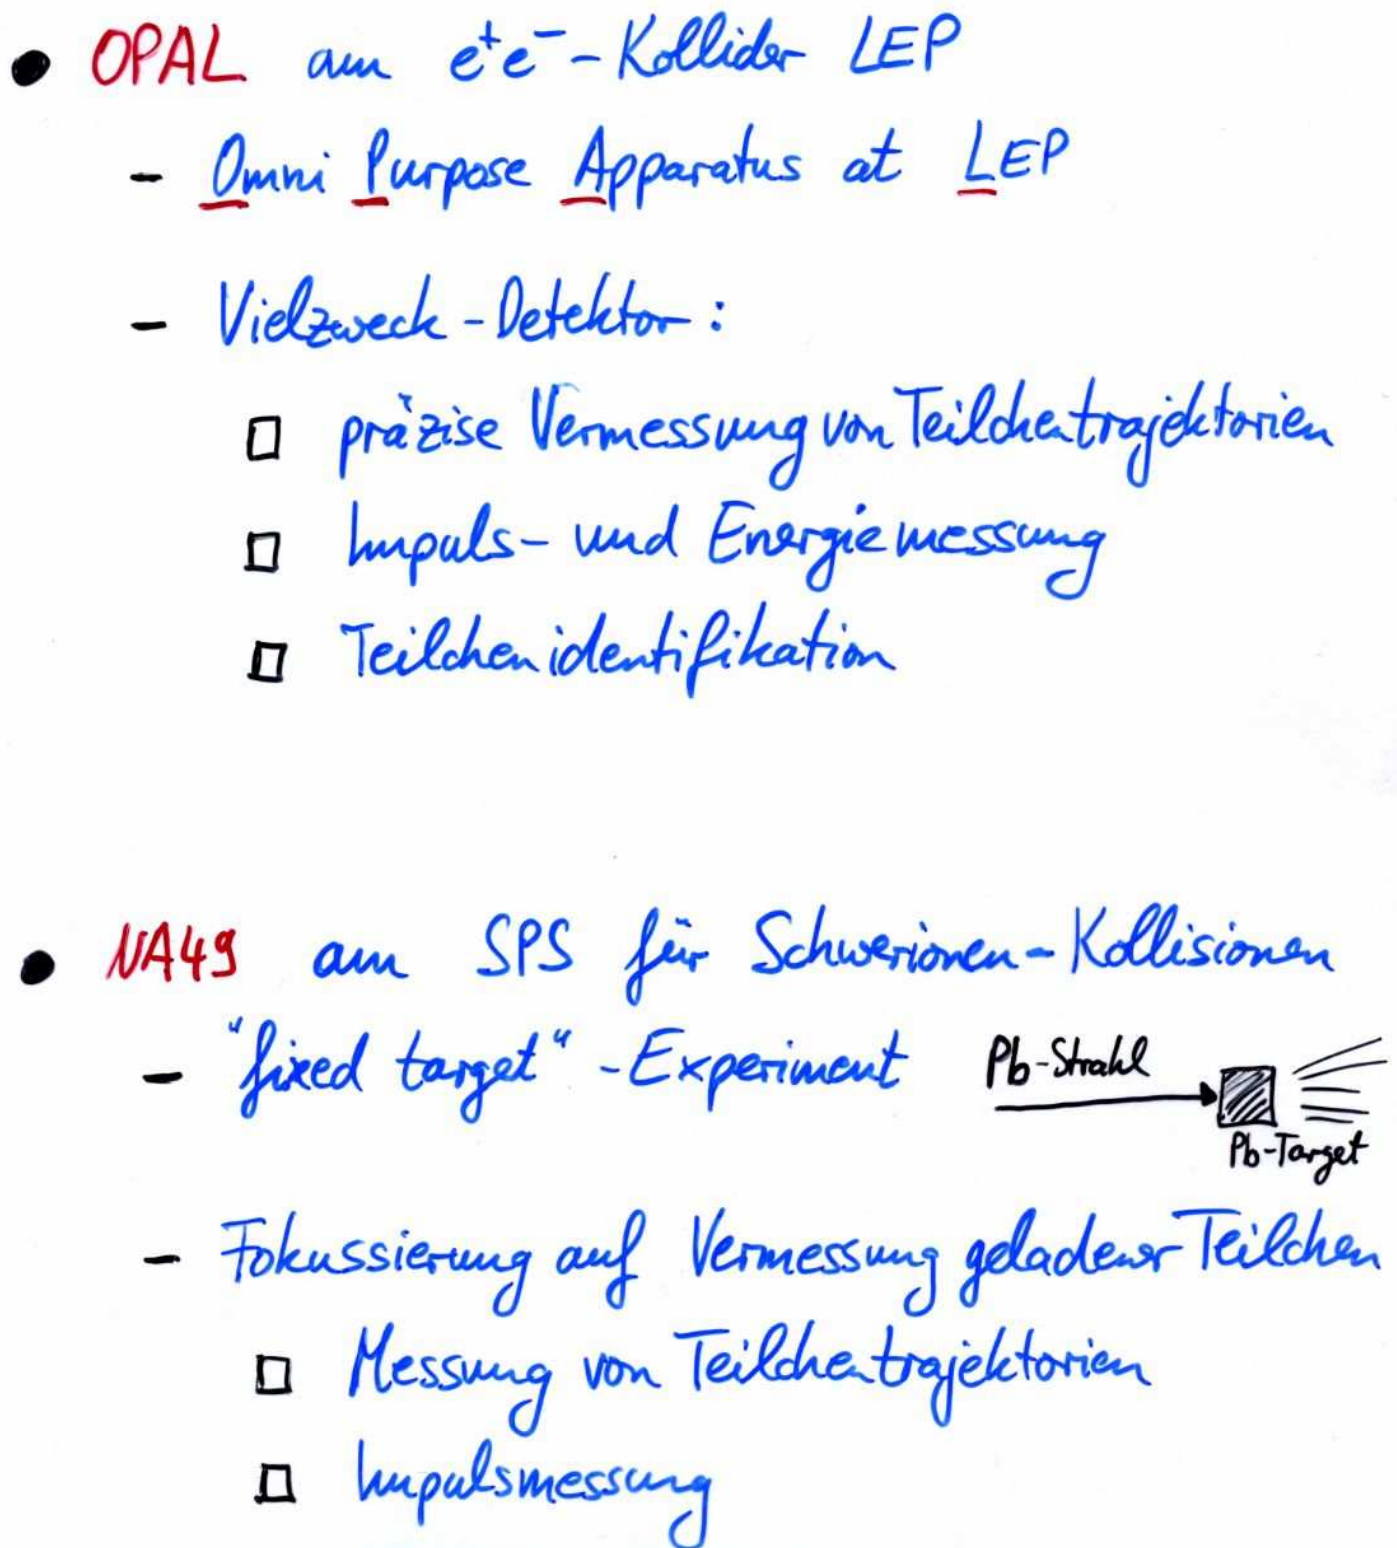 ● OPAL am e⁺e⁻-Kollider LEP
- Omni Purpose Apparatus at LEP
- Vielzweck-Detektor:
□ präzise Vermessung von Teilchentrajektorien
□ Impuls- und Energiemessung
□ Teilchenidentifikation
● NA49 am SPS für Schwerionen-Kollisionen
- "fixed target"-Experiment
Pb-Strahl
Pb-Target
- Fokussierung auf Vermessung geladener Teilchen
□ Messung von Teilchentrajektorien
□ Impulsmessung